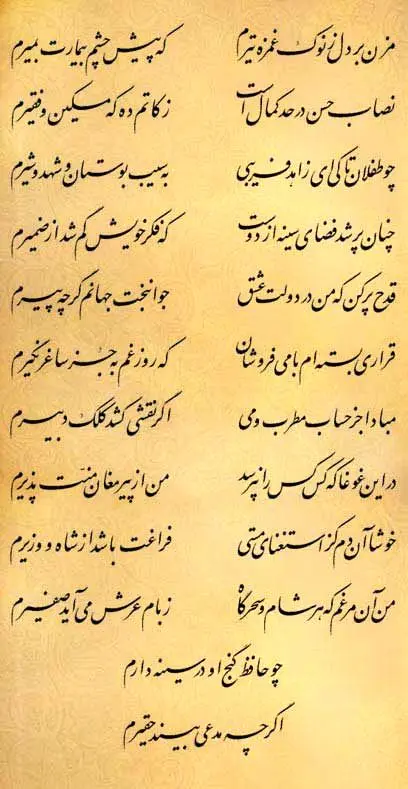 مزن بر دل ز نوک غمزه تیرم که پیش چشم بیمارت بمیرم
نصاب حسن در حد کمال است زکاتم ده که مسکین و فقیرم
چو طفلان تا کی ای زاهد فریبی به سیب بوستان و شهد و شیرم
چنان پر شد فضای سینه از دوست که فکر خویش گم شد از ضمیرم
قدح پر کن که من در دولت عشق جوانبخت جهانم گرچه پیرم
قراری بسته‌ام با می فروشان که روز غم به جز ساغر نگیرم
مبادا جز حساب مطرب و می اگر نقشی کشد کلک دبیرم
در این غوغا که کس کس را نپرسد من از پیر مغان منّت پذیرم
خوشا آن دم کز استغنای مستی فراغت باشد از شاه و وزیرم
من آن مرغم که هر شام و سحرگاه ز بام عرش می‌آید صفیرم
چو حافظ گنج او در سینه دارم
اگرچه مدعی بیند حقیرم